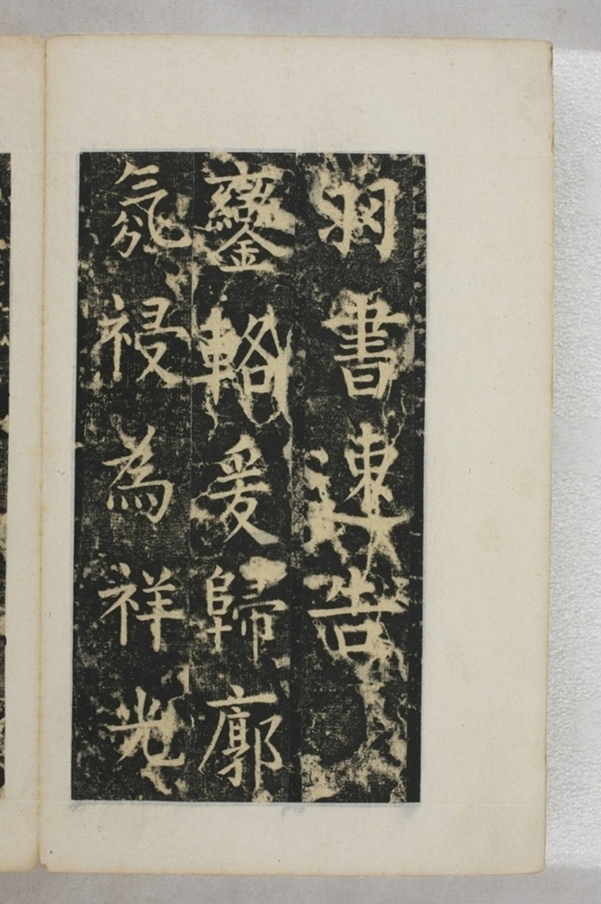 羽書速告
鑾輅爰歸廓
氛祲為祥光